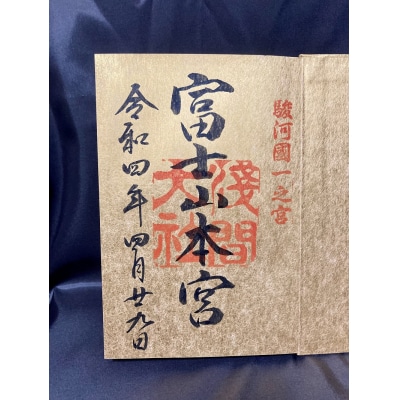 駿河國一之宮
富士山本宮
淺間
天社
令和四年四月廿九日